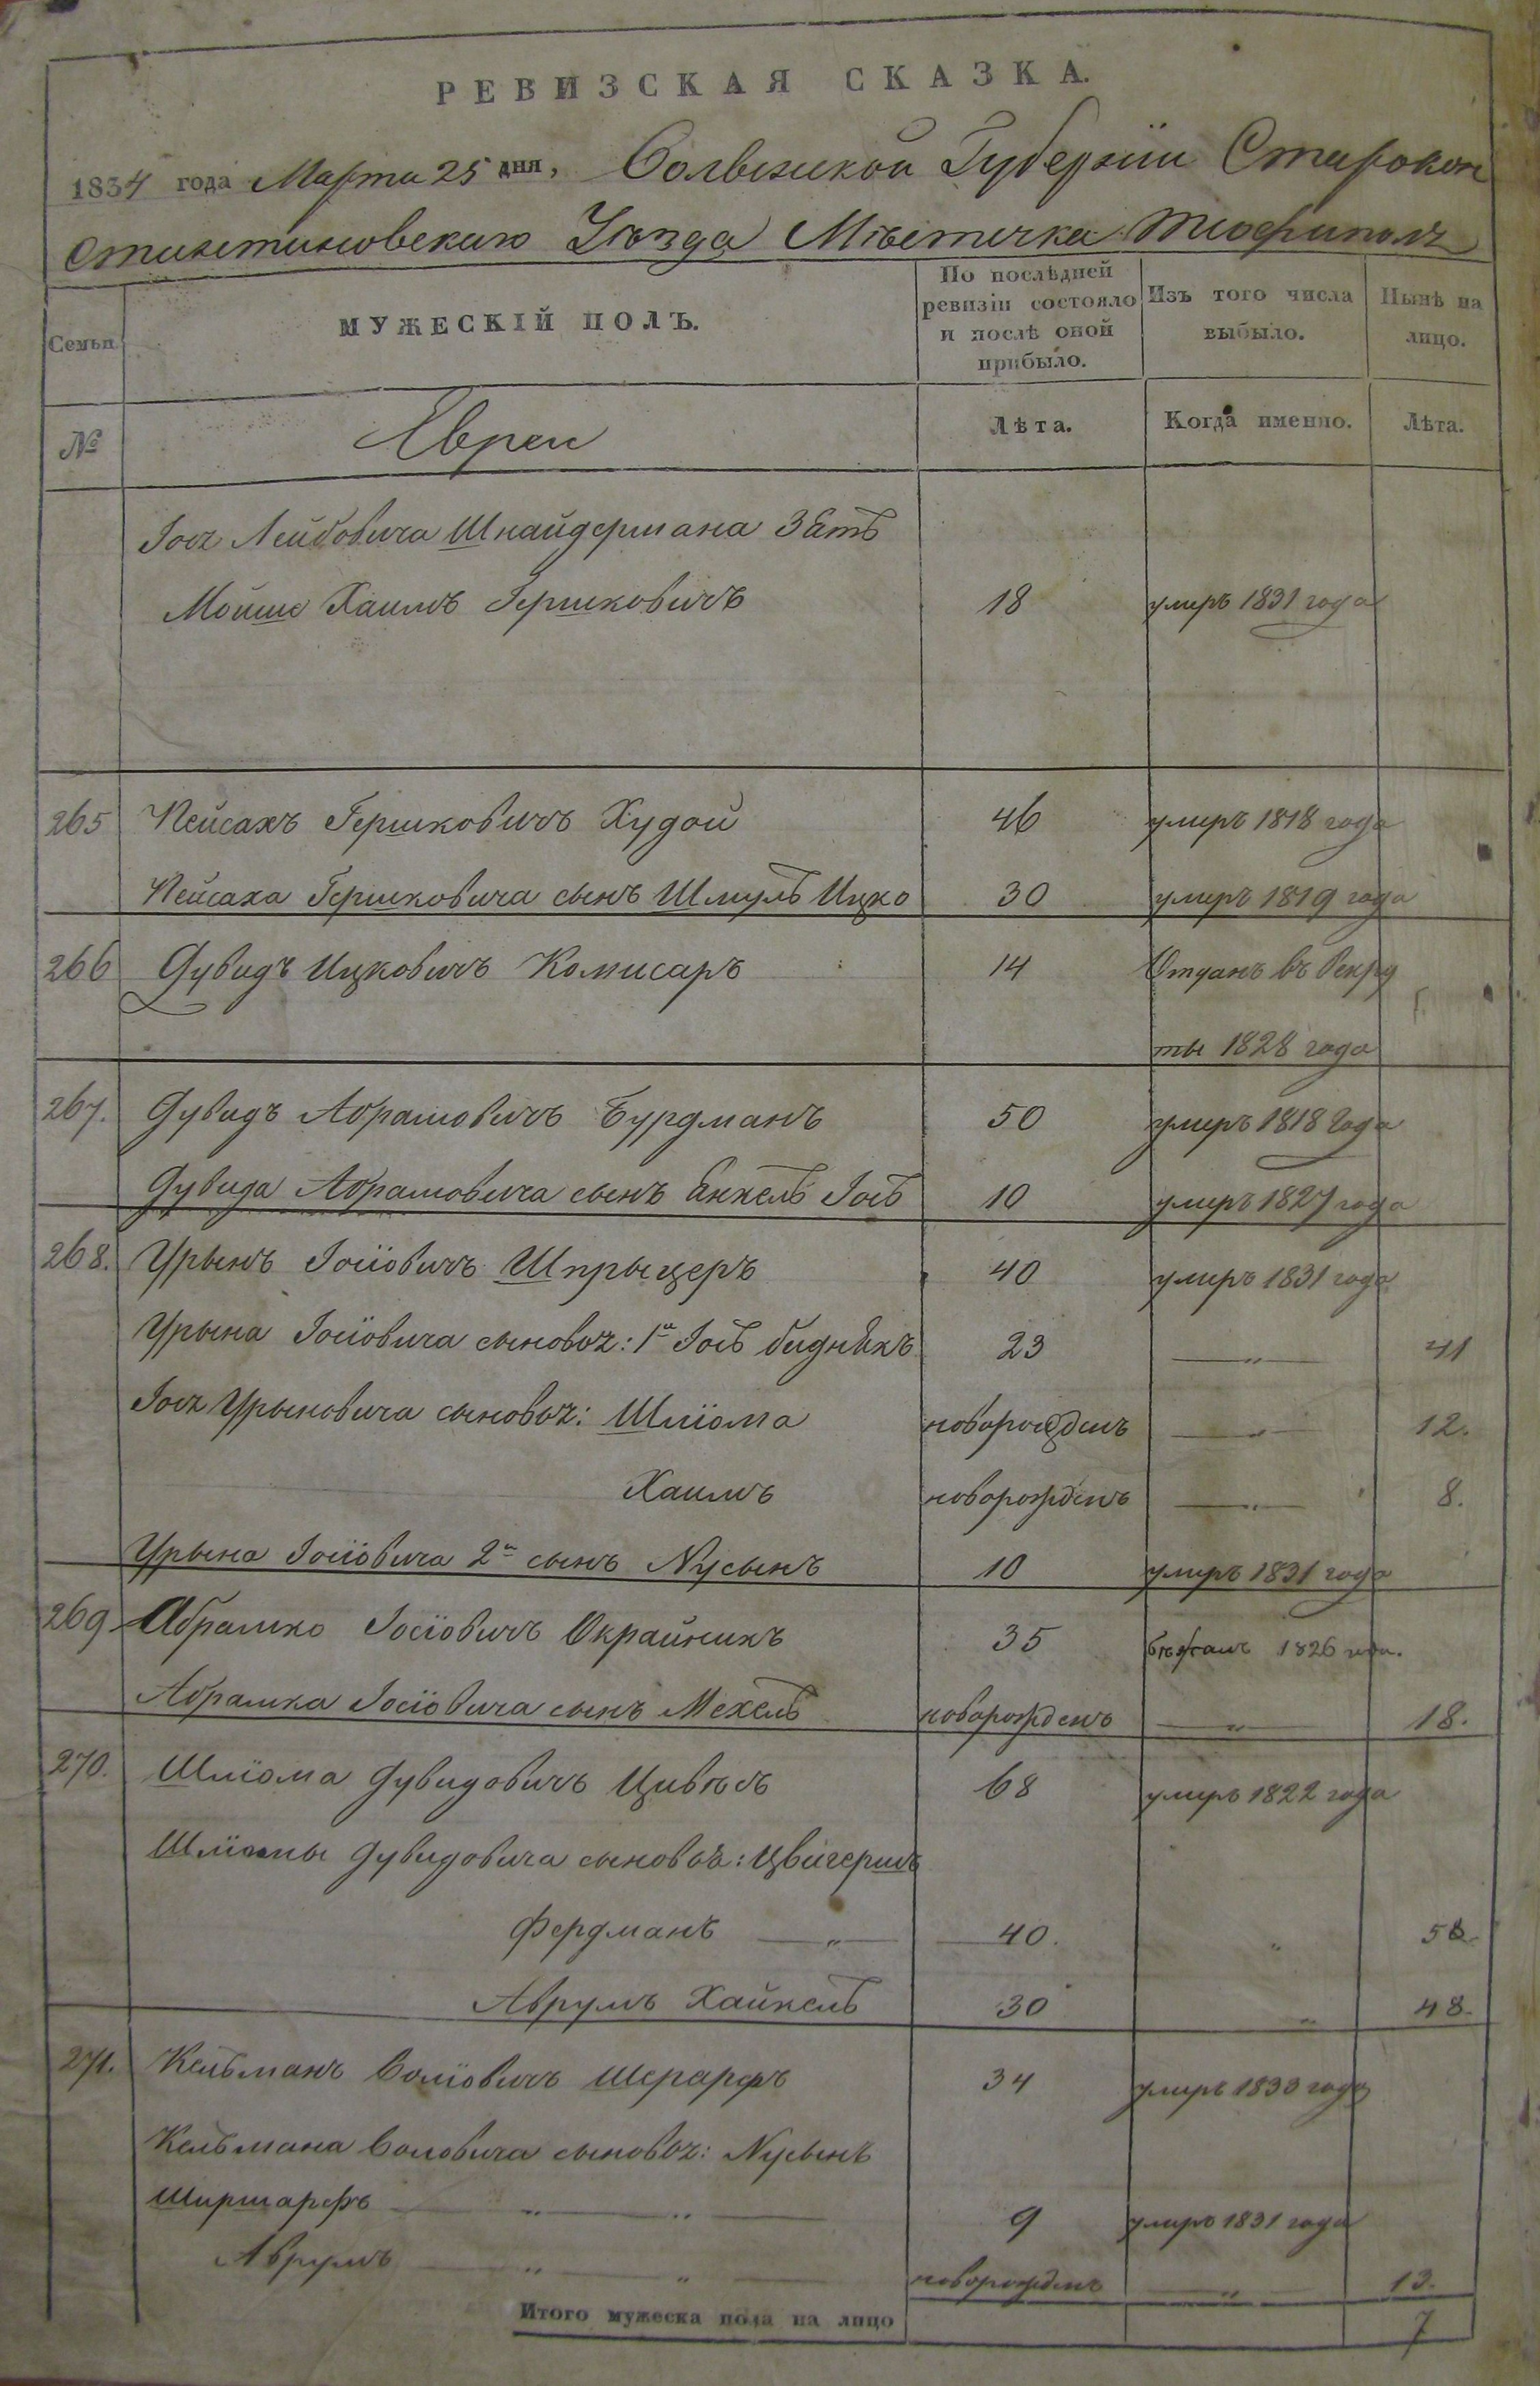 РЕВИЗСКАЯ СКАЗКА.
1834 года Марта 25 дня, Волынской Губернїи Старокон
стантиновскаго Уѣзда Мѣстечка Тиофиполя
Семьи
МУЖЕСКІЙ ПОЛЪ.
По послѣдней ревизіи состояло и послѣ оной прибыло.
Изъ того числа выбыло.
Нынѣ на лицо.
№ Евреи Лѣта. Когда именно. Лѣта.
Іося Лейбовича Шнайдермана Зять
Мойше Хаимъ Гершковичъ 18 умеръ 1831 года
265 Пейсахъ Гершковичъ Худой 46 умеръ 1818 года
Пейсаха Гершковича сынъ Шмуль Ицко 30 умеръ 1819 года
266 Дувидъ Ицковичъ Комисаръ 14 Отданъ въ Рекру
ты 1828 года
267. Дувидъ Абрамовичъ Бурдманъ 50 умеръ 1818 года
Дувида Абрамовича сынъ Янкель Іось 10 умеръ 1827 года
268. Урынъ Іосіовичъ Шпрыцеръ 40 умеръ 1831 года
Урына Іосіовича сыновья: 1й Іось бидняkъ 23 — „ — 41
Іося Урыновича сыновья: Шліома новорожденъ — „ — 12.
Хаимъ новорожденъ — „ — 8.
Урына Іосіовича 2й сынъ Нусынъ 10 умеръ 1831 года
269 Абрамко Іосіовичъ Окрайникъ 35 бѣжалъ 1826 года.
Абрамка Іосіовича сынъ Мехель новорожденъ — „ — 18.
270. Шліома Дувидовичъ Цивюсъ 68 умеръ 1822 года
Шліомы Дувидовича сыновья: Цвигершъ
Фердманъ — „ — 40. „ 58.
Аврумъ Хайкель 30 „ 48.
271. Кельманъ Воліовичъ Шерарфъ 34 умеръ 1833 года
Кельмана Воловича сыновья: Нусынъ
Ширшарфъ — „ — „ — 9 умеръ 1831 года
Аврумъ — „ — „ — новорожденъ — „ — 13.
Итого мужеска пола на лицо 7